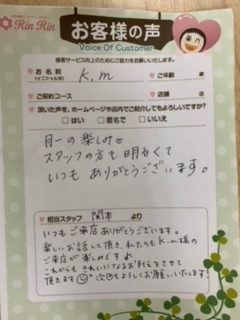 Rin Rin
お客様の声
Voice Of Customer
接客サービス向上のためにご協力をお願いいたします。
お名前
(イニシャル可)
K.m
ご年齢
歳
ご契約コース
店舗
店
頂いた声を、ホームページや店内でご紹介してもよろしいですか?
□はい □匿名で □いいえ
月一の楽しみ♡
スタッフの方も明るくて
いつもありがとうございます。
担当スタッフ 関本 より
いつもご来店ありがとうございます。
楽しいお話して頂き、私たちもK.m様の
ご来店が楽しみです
これからもきれいになるお手伝をさせて
頂きます 次回もよろしくお願いいたします!